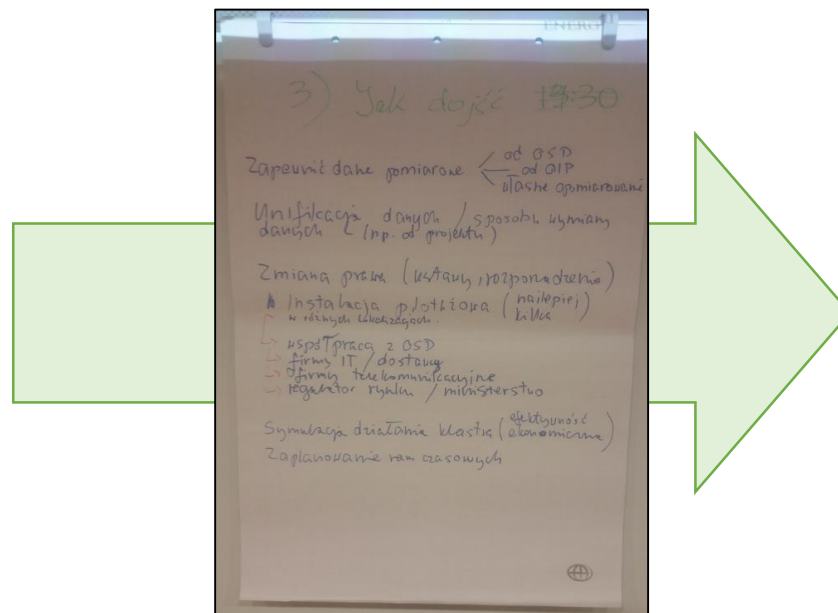 ENERG
3) Jak dojść 13:30
Zapewnić dane pomiarowe
od OSD
od OIP
własne opomiarowanie
Unifikacja danych / sposobu wymiany
danych (np. od projektu)
Zmiana prawa (ustawy, rozporządzenia)
Instalacja pilotażowa (najlepiej
kilka)
w różnych lokalizacjach.
współpraca z OSD
firmy IT / dostawcy
firmy telekomunikacyjne
regulator rynku / ministerstwo
Symulacja działania klastra (efektywność
ekonomiczna)
Zaplanowanie ram czasowych